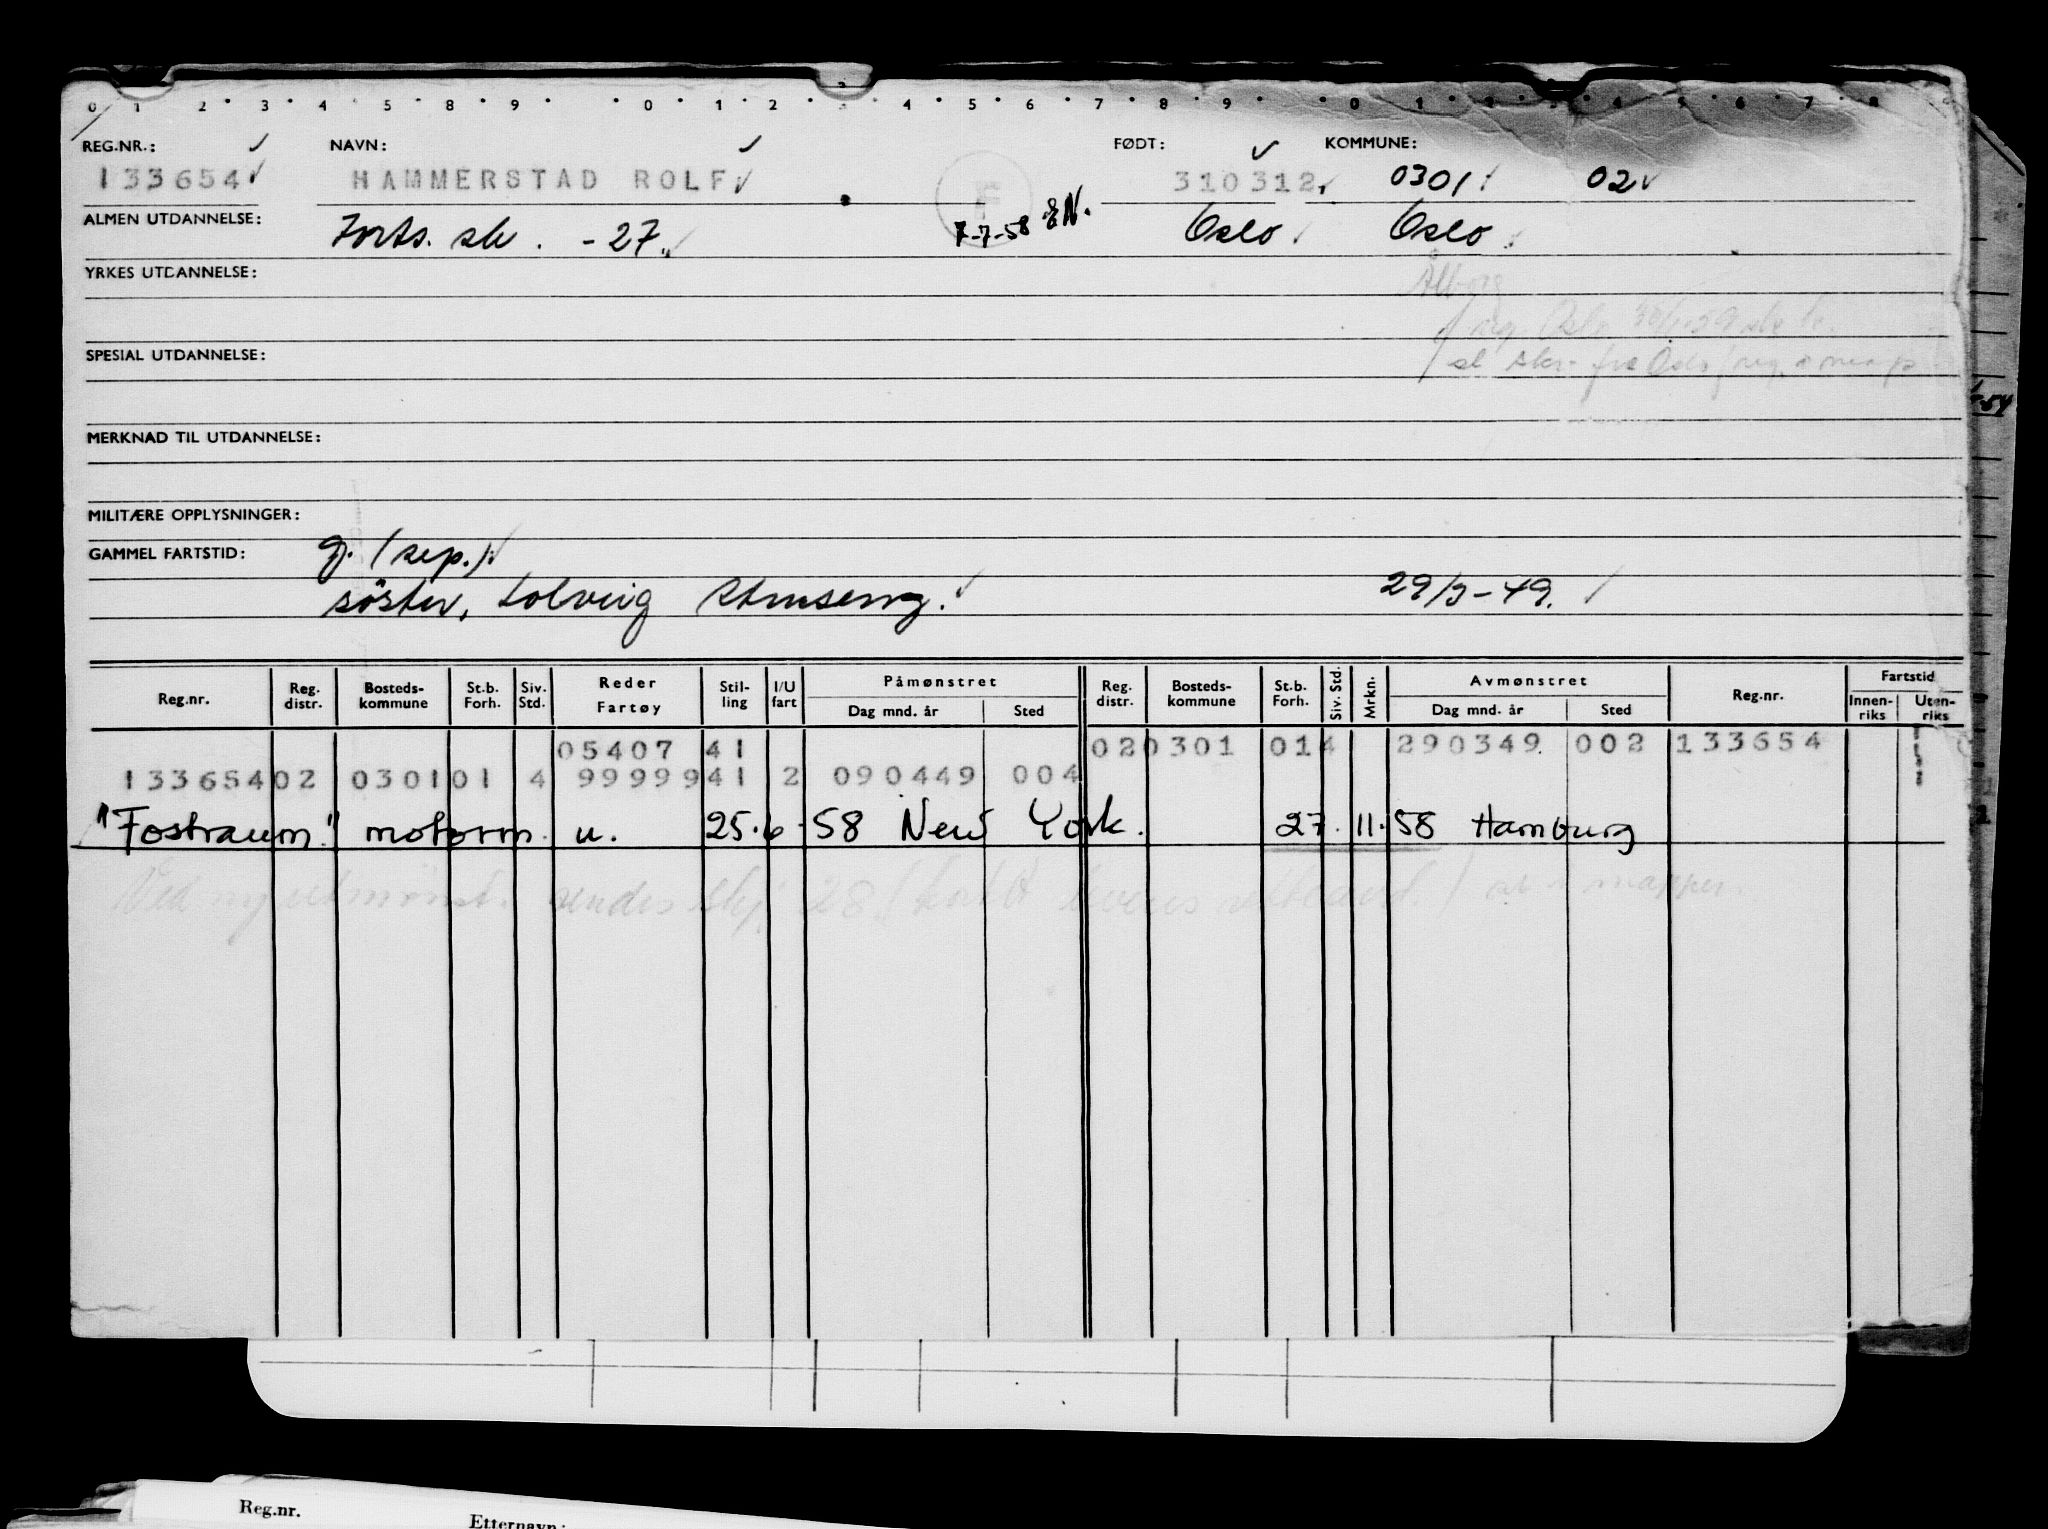 0 1 2 3 4 5 8 9 0 1 2 3 4 5 6 7 8 9 0 1 4 5 6 7 8
REG.NR.: NAVN: FØDT: KOMMUNE:
133654 HAMMERSTAD ROLF F 310312 0301 02
ALMEN UTDANNELSE: Forts. sk. -27. 7-7-58 EN. Oslo Oslo
YRKES UTDANNELSE:
Ålborg
Oslo
SPESIAL UTDANNELSE:
fra Oslo
MERKNAD TIL UTDANNELSE:
MILITÆRE OPPLYSNINGER:
GAMMEL FARTSTID: g. (sep.).
söster, Solveig 29/3-49.
Reg.nr. Reg. distr. Bosteds- kommune St.b. Forh. Siv. Std. Reder Fartøy Stil- ling I/U fart Påmønstret Dag mnd. år Sted Reg. distr. Bosteds- kommune St.b. Forh. Siv. Std. Mrkn. Avmønstret Dag mnd. år Sted Reg.nr. Fartstid Innen- riks Uten- riks
05407 41 02 0301 01 4 290349 002 133654
133654 02 0301 01 4 99999 41 2 090449 004
"Fostraum" motorm. u. 25.6.58 New York. 27.11.58 Hamburg
Ved ny utmönst. sendes skj. 28 (
Reg.nr.
Etternavn: